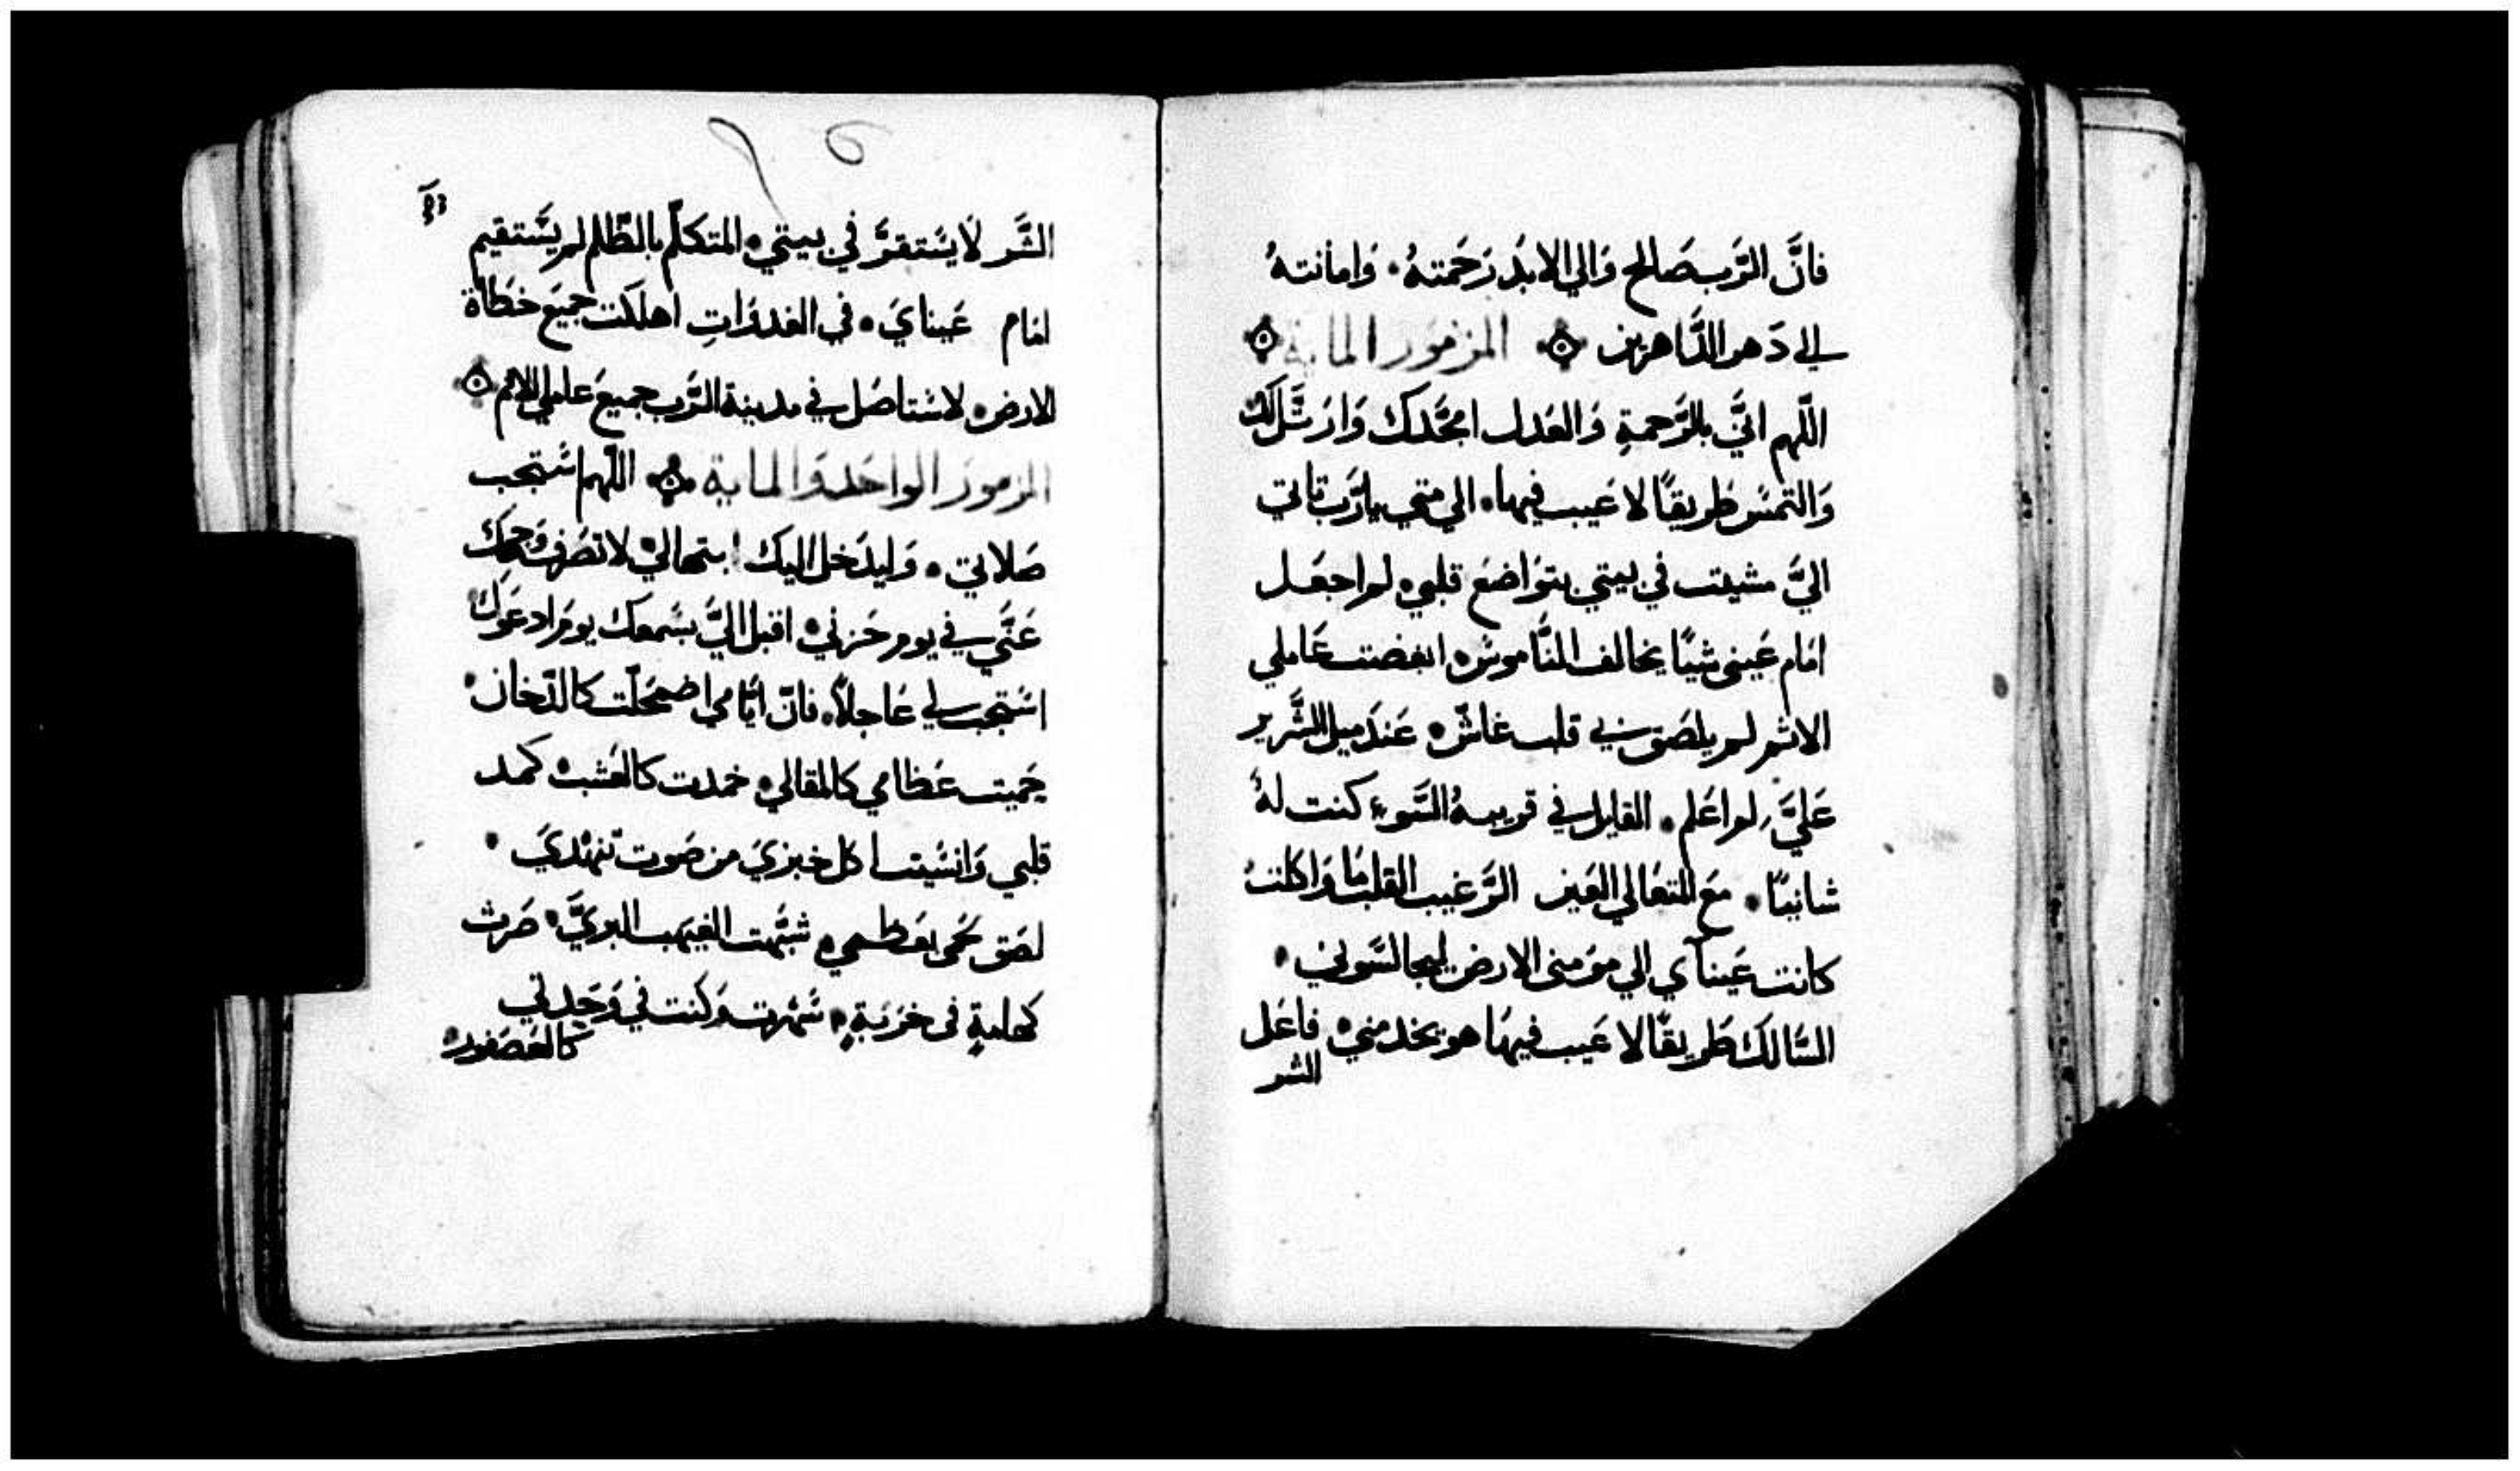 فانَّ الرَّب صَالح وَالي الابَد رَحمَتهُ. وَامانتهُ
الي دَهر الدَّاهرين المزمور الماية
اللّهم انيَّ بالرَّحمةِ وَالعَدل امجَّدك وَارَتَّل لك
وَالتمسُ طَريقًا لا عَيب فيها. الي متي يا رَب تاتي
اليَّ مشيت في بيتي بتوَاضعَ قلبي لم اجعَل
امَام عَيني شيًا يخالف النَّاموسَ ابغضت عَاملي
الاثم لم يلصَق بي قلب غاشّ عَندَ ميل الشَّرير
عَليَّ لم اعَلم. القايل في قريبهُ السَّوء كنت لهُ
شانيًا. مَع المتعَالي العَين الرَّغيب القلب مَا وَاكلت
كانت عَينآي الي مؤمني الارض ليجالسَوني
السَّالك طَريقًا لا عَيب فيهَا هو يخدمني فاعَل
الشر
الشَّر لاَ يسَتقرَّ في بيتي المتكلّم بالظَّلم لم يسَّتقيم
امَام عَينايَ في الغدوَاتِ اهلكت جميَع خطَاة
الارض لاستاصَل في مدينة الرَّب جميعَ عاملي الاثم
المزمورَ الواحَد وَالماية اللّهم اسَتجب
صَلاتي وَليدَخل اليك ابتهالي لا تصَرف وَجهك
عَنَّي في يوم حَزني اقبل اليَّ بسَمعك يومَ ادعَوك
استجب لي عَاجلاً فانّ ايَّامي اضمَحلّت كالدّخان
حَميت عَظامي كالمقالي خمدت كالعَشب كمد
قلبي وَانسَيت اكل خبزيَ من صَوت تنهّديَ
لصَق لحمي بعَظمي شبَّهت الغيهب البريَّ صَرت
كهامةٍ في خرَبةٍ سَهرت وَكنت في وَحَدتي
كالعَصَفور